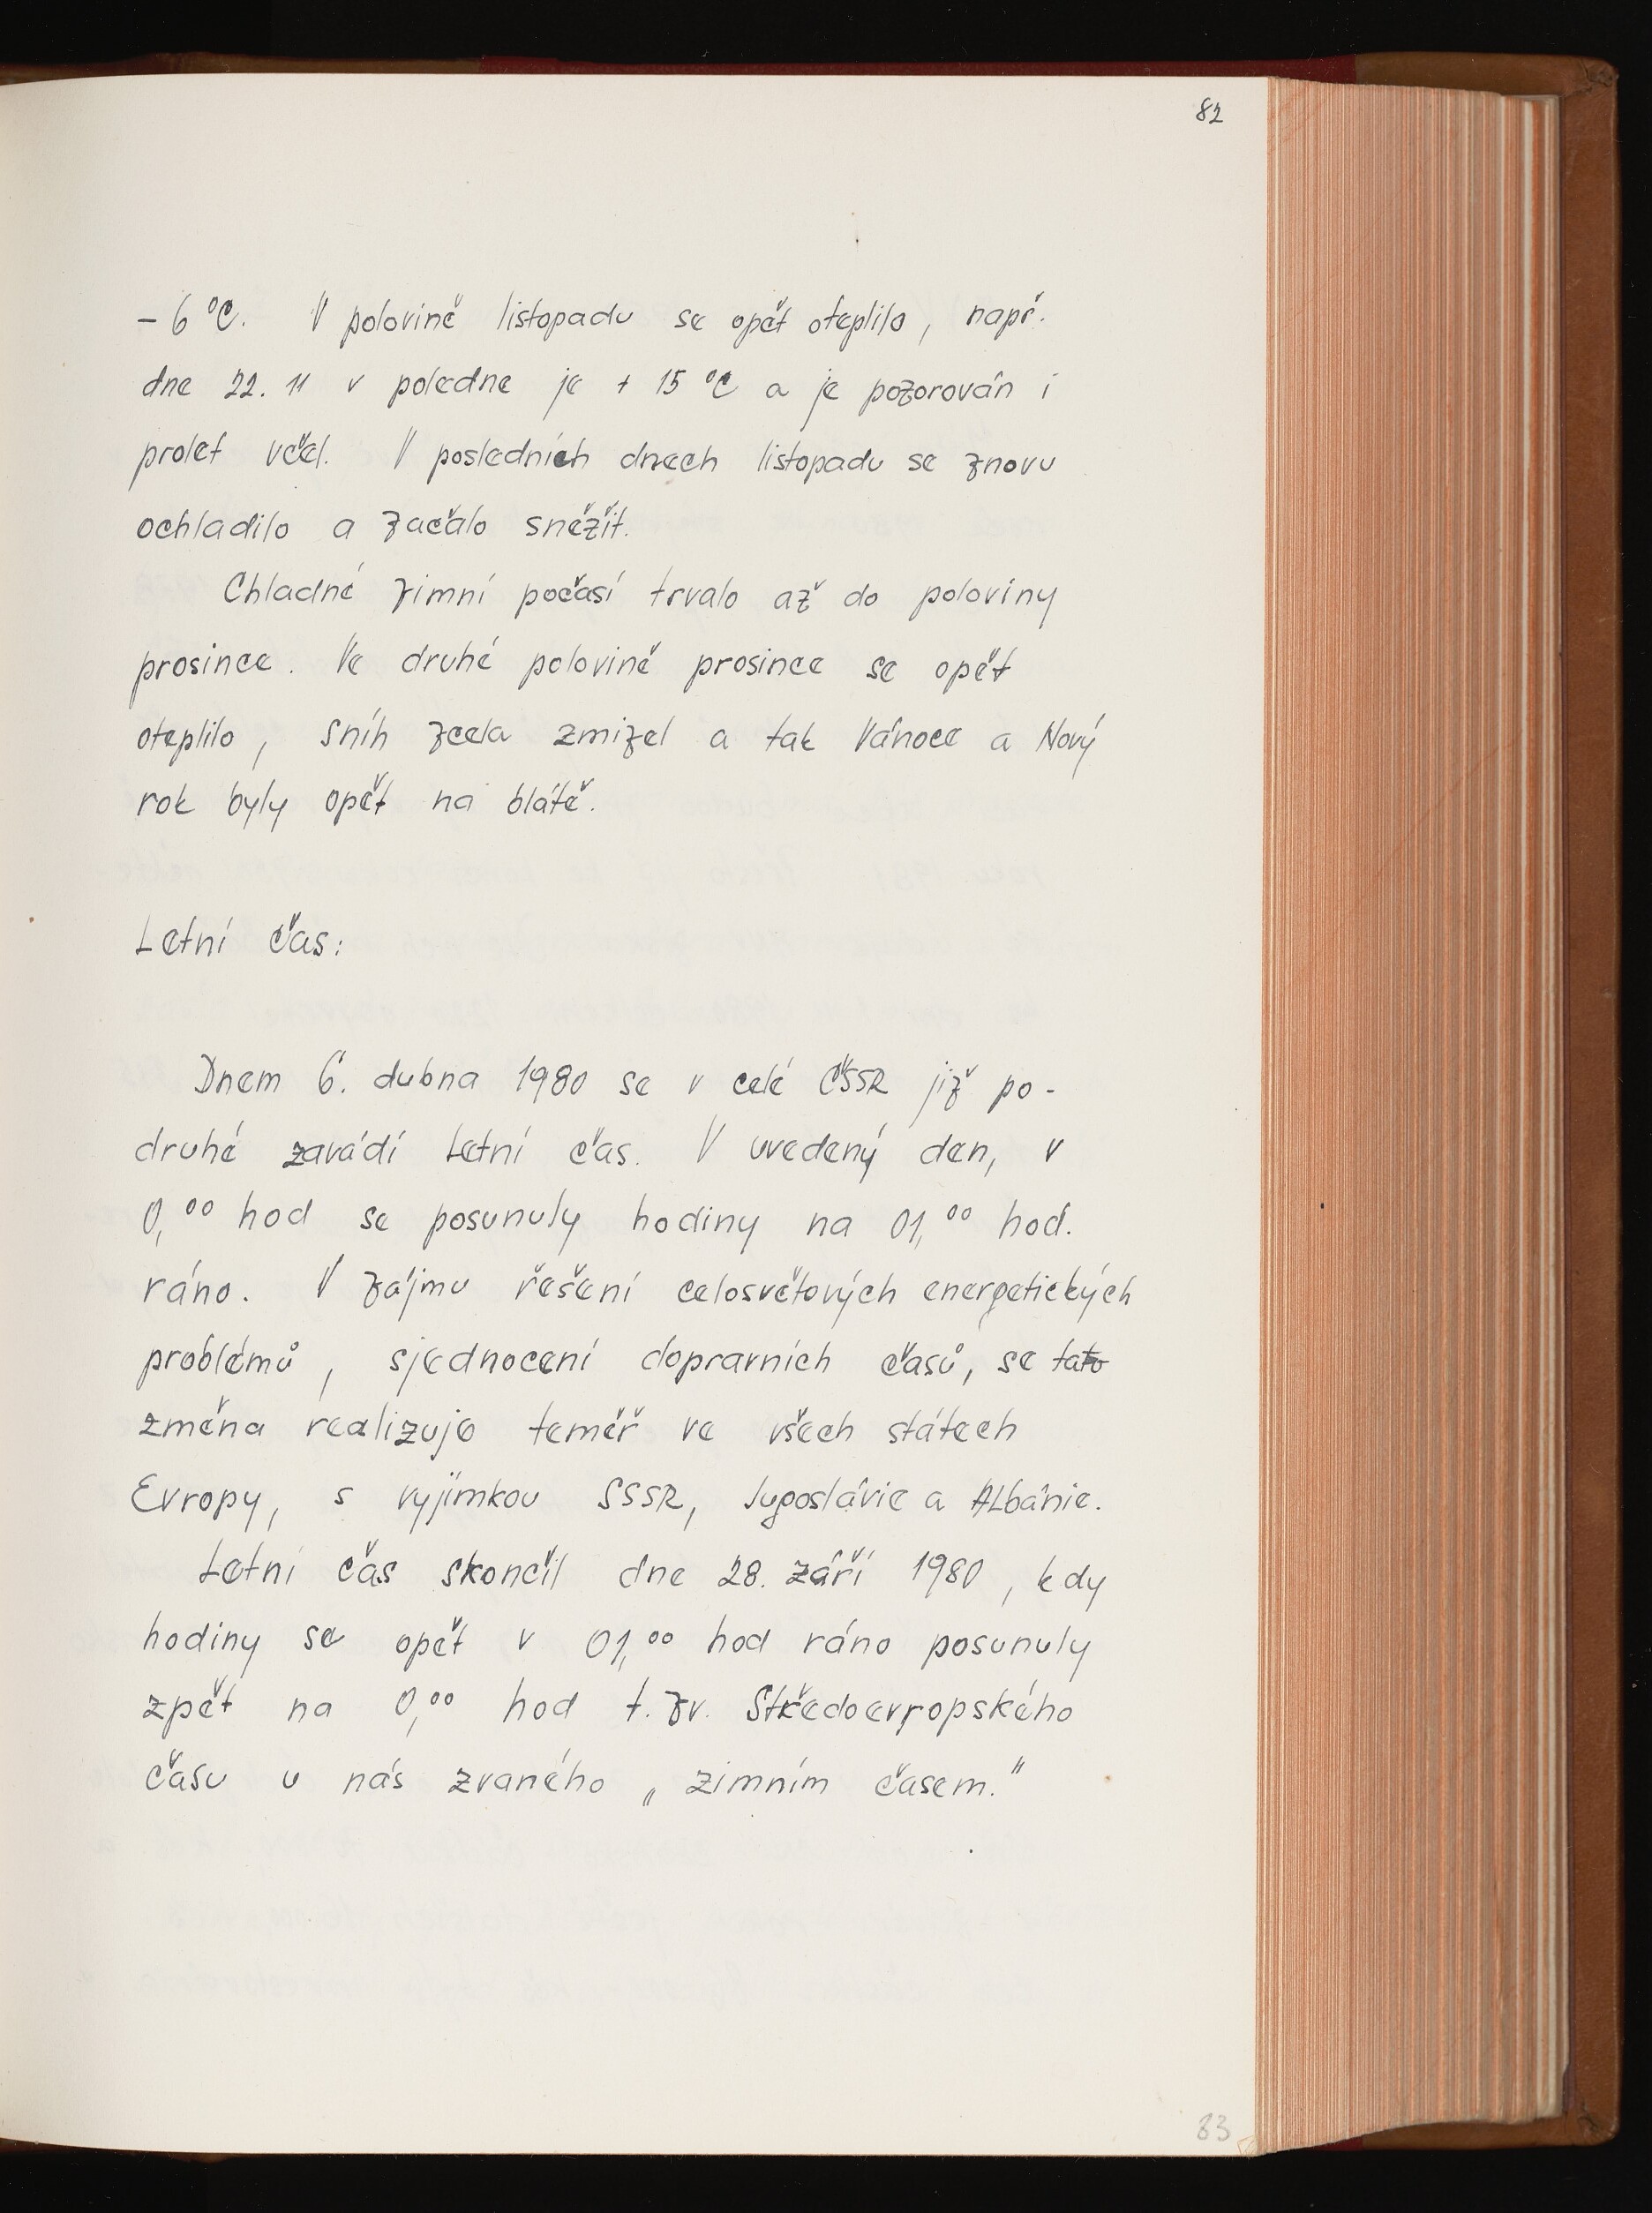 82
- 6 °C. V polovině listopadu se opět oteplilo, např.
dne 22. 11 v poledne je + 15 °C a je pozorován i
prolet včel. V posledních dnech listopadu se znovu
ochladilo a začalo sněžit.
Chladné zimní počasí trvalo až do poloviny
prosince. Ve druhé polovině prosince se opět
oteplilo, sníh zcela zmizel a tak Vánoce a Nový
rok byly opět na blátě.
Letní čas:
Dnem 6. dubna 1980 se v celé ČSSR již po-
druhé zavádí Letní čas. V uvedený den, v
0,00 hod se posunuly hodiny na 01,00 hod.
ráno. V zájmu řešení celosvětových energetických
problémů, sjednocení dopravních časů, se tato
změna realizuje teměř ve všech státech
Evropy, s vyjímkou SSSR, Jugoslávie a Albánie.
Letní čas skončil dne 28. září 1980, kdy
hodiny se opět v 01,00 hod ráno posunuly
zpět na 0,00 hod t. zv. Středoevropského
času u nás zvaného „zimním časem."
83